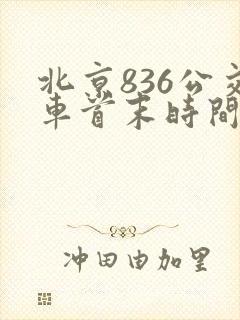 北京836公交
車首末時間
冲田由加里